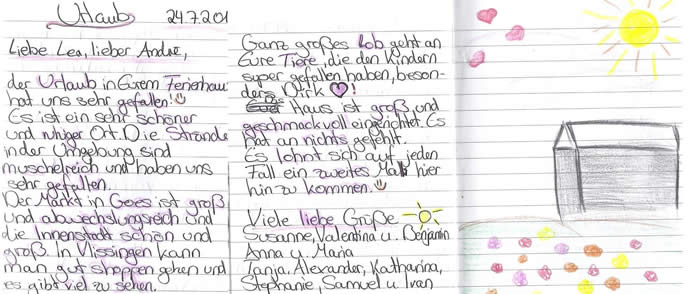 Urlaub 24.7.201
Liebe Lea, lieber Andre,
der Urlaub in Eurem Ferienhau
hat uns sehr gefallen!
Es ist ein sehr schöner
und ruhiger Ort. Die Strände
in der Umgebung sind
muschelreich und haben uns
sehr gefallen.
Der Markt in Goes ist groß
und abwechslungsreich und
die Innenstadt schön und
groß. In Vlissingen kann
man gut shoppen gehen und
es gibt viel zu sehen.
Ganz großes Lob geht an
Eure Tiere, die den Kindern
super gefallen haben, beson-
ders Dirk!
Haus ist groß und
geschmackvoll eingerichtet. Es
hat an nichts gefehlt.
Es lohnt sich auf jeden
Fall ein zweites Mal hier
hin zu kommen.
Viele liebe Grüße
Susanne, Valentina u. Benjamin
Anna u. Maria
Tanja, Alexander, Katharina,
Stephanie, Samuel u. Ivan